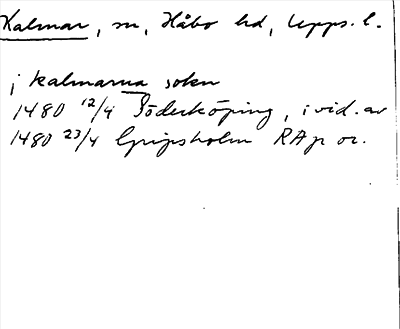 Kalmar, sn, Håbo hd, Upps. l.
j kalmarna sokn
1480 12/4 Söderköping, i vid. av
1480 23/4 Gripsholm RAp or.